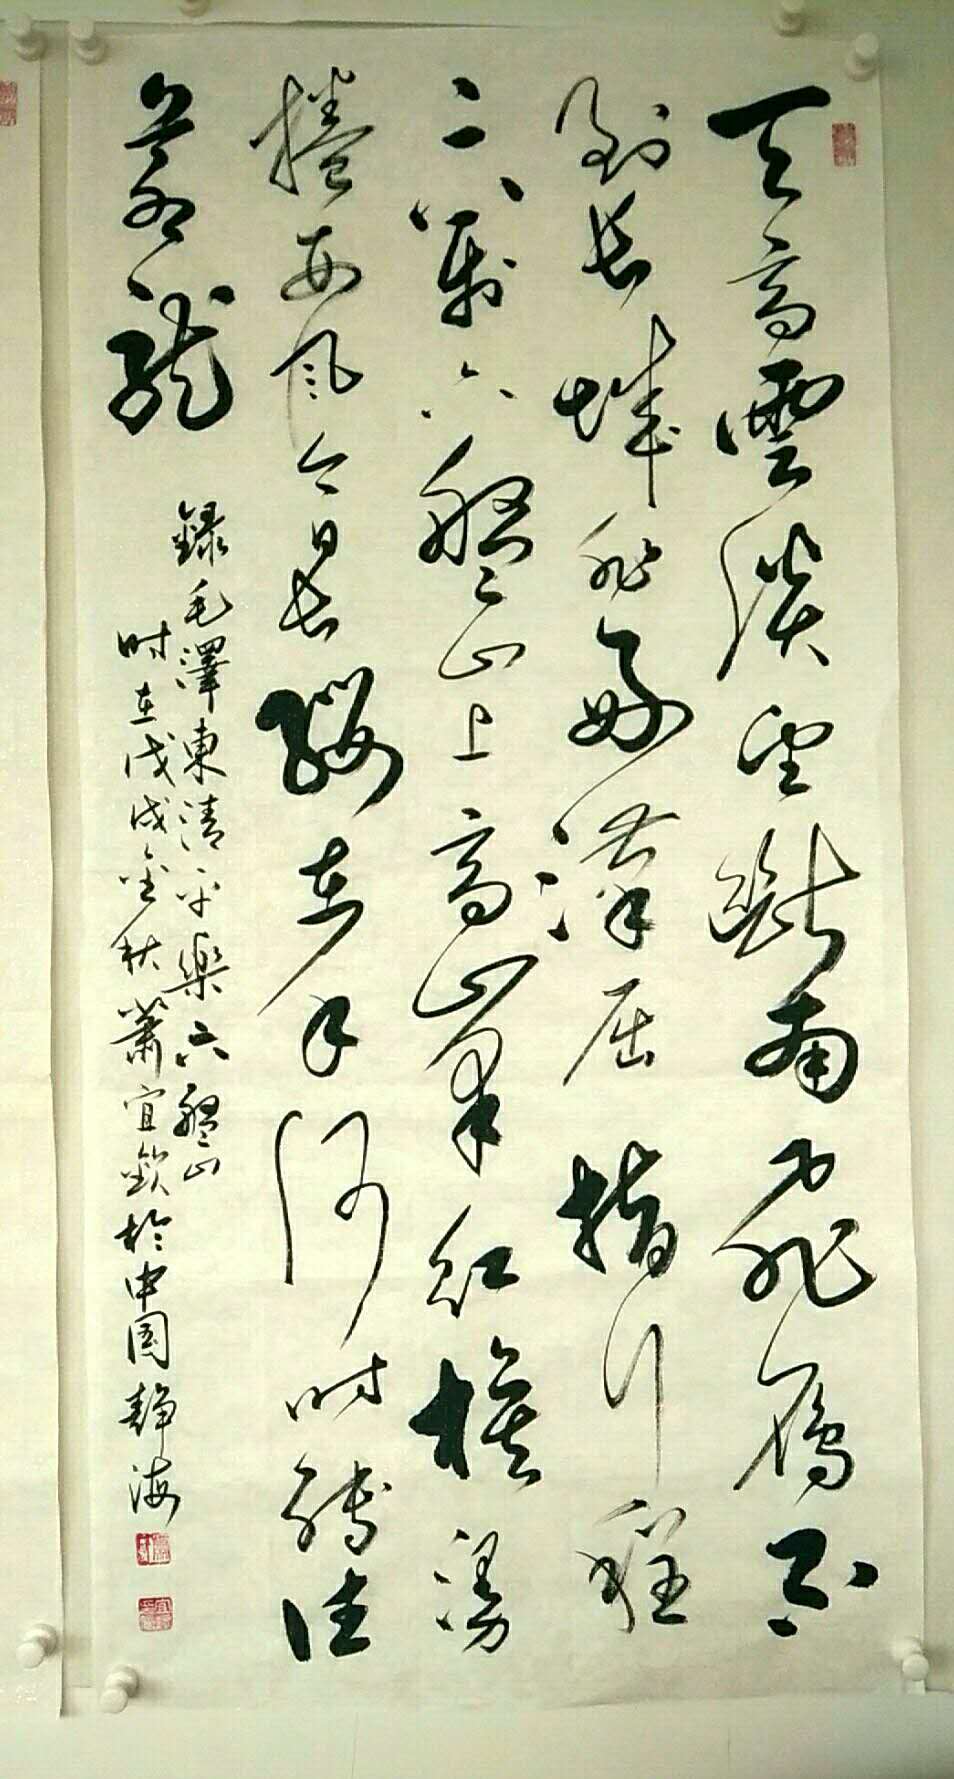 天高雲淡望斷南飛雁不
到長城非好漢屈指行程
二萬六盤山上高峯紅旗漫
捲西風今日長纓在手何时縛住
蒼龍
錄毛澤東清平樂六盤山
时在戊戌金秋蕭宜欽於中国静海